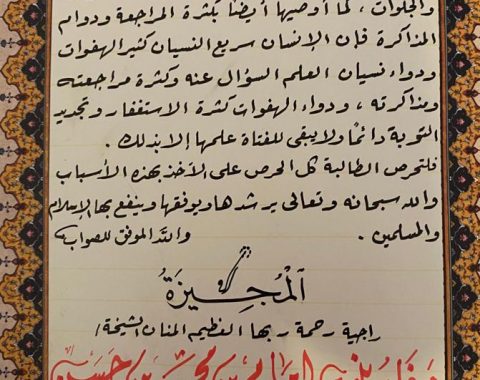 والجلوات ، كما أوصيها أيضًا بكثرة المراجعة ودوام
المذاكرة فإن الإنسان سريع النسيان كثير الهفوات
ودواء نسيان العلم السؤال عنه وكثرة مراجعته
ومذاكرته ، ودواء الهفوات كثرة الاستغفار وتجديد
التوبة دائمًا ولا يبقى للفتاة علمها إلا بذلك .
فلتحرص الطالبة كل الحرص على الأخذ بهذه الأسباب
والله سبحانه وتعالى يرشدها ويوفقها وينفع بها الإسلام
والمسلمين . والله الموفق للصواب
الْمُجِيزَةُ
راجية رحمة ربها العظيم المنان الشيخة /
بنت إبراهيم بن محمد بن حسين